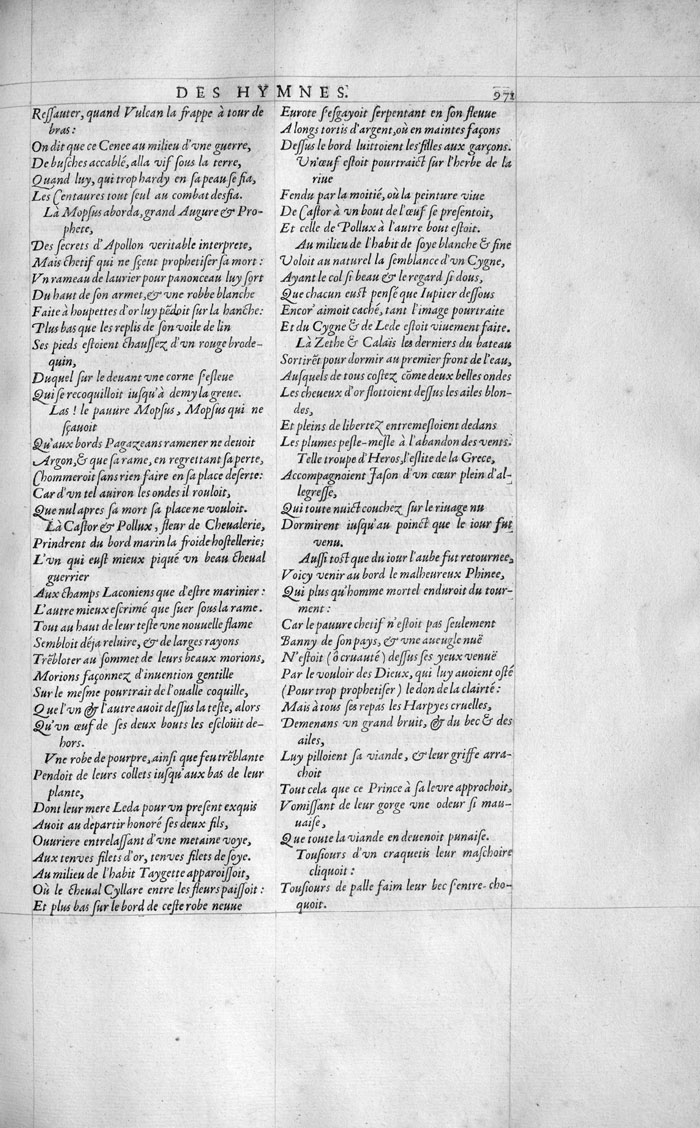 DES HYMNES.
971
Ressauter, quand Vulcan la frappe à tour de
bras:
On dit que ce Cenee au milieu d'vne guerre,
De busches accablé, alla vif sous la terre,
Quand luy, qui trop hardy en sa peau se fia,
Les Centaures tout seul au combat desfia.
Là Mopsus aborda, grand Augure & Pro-
phete,
Des secrets d'Apollon veritable interprete,
Mais chetif qui ne sçeut prophetiser sa mort:
Vn rameau de laurier pour panonceau luy sort
Du haut de son armet, & vne robbe blanche
Faite à houpettes d'or luy pẽdoit sur la hanche:
Plus bas que les replis de son voile de lin
Ses pieds estoient chaussez d'vn rouge brode-
quin,
Duquel sur le deuant vne corne s'esleue
Qui se recoquilloit iusqu'à demy la greue.
Las! le pauure Mopsus, Mopsus qui ne
sçauoit
Qu'aux bords Pagazeans ramener ne deuoit
Argon, & que sa rame, en regrettant sa perte,
Chommeroit sans rien faire en sa place deserte:
Car d'vn tel auiron les ondes il rouloit,
Que nul apres sa mort sa place ne vouloit.
Là Castor & Pollux, fleur de Cheualerie,
Prindrent du bord marin la froide hostellerie;
L'vn qui eust mieux piqué vn beau cheual
guerrier
Aux champs Laconiens que d'estre marinier:
L'autre mieux escrimé que suer sous la rame.
Tout au haut de leur teste vne nouuelle flame
Sembloit déja reluire, & de larges rayons
Trẽbloter au sommet de leurs beaux morions,
Morions façonnez d'inuention gentille
Sur le mesme pourtrait de l'oualle coquille,
Que l'vn & l'autre auoit dessus la teste, alors
Qu'vn œuf de ses deux bouts les esclöüit de-
hors.
Vne robe de pourpre, ainsi que feu trẽblante
Pendoit de leurs collets iusqu'aux bas de leur
plante,
Dont leur mere Leda pour vn present exquis
Auoit au départir honoré ses deux fils,
Ouuriere entrelassant d'vne metaine voye,
Aux tenves filets d'or, tenves filets de soye.
Au milieu de l'habit Taygette apparoissoit,
Où le cheual Cyllare entre les fleurs paissoit:
Et plus bas sur le bord de ceste robe neuue
Eurote s'esgayoit serpentant en son fleuue
A longs tortis d'argent, où en maintes façons
Dessus le bord luittoient les filles aux garçons.
Vn œuf estoit pourtraict sur l'herbe de la
riue
Fendu par la moitié, où la peinture viue
De Castor à vn bout de l'œuf se presentoit,
Et celle de Pollux à l'autre bout estoit.
Au milieu de l'habit de soye blanche & fine
Voloit au naturel la semblance d'vn Cygne,
Ayant le col si beau & le regard si dous,
Que chacun eust pensé que Iupiter dessous
Encor' aimoit caché, tant l'image pourtraite
Et du Cygne & de Lede estoit viuement faite.
Là Zethe & Calaïs les derniers du bateau
Sortirẽt pour dormir au premier front de l'eau,
Ausquels de tous costez cõme deux belles ondes
Les cheueux d'or flottoient dessus les ailes blon-
des,
Et pleins de libertez entremesloient dedans
Les plumes pesle-mesle à l'abandon des vents.
Telle troupe d'Heros, l'eslite de la Grece,
Accompagnoient Jason d'vn cœur plein d'al-
legresse,
Qui toute nuict couchez sur le riuage nu
Dormirent iusqu'au poinct que le iour fut
venu.
Aussi tost que du iour l'aube fut retournee,
Voicy venir au bord le malheureux Phinee,
Qui plus qu'homme mortel enduroit du tour-
ment:
Car le pauure chetif n'estoit pas seulement
Banny de son pays, & vne aueugle nuë
N'estoit (ô cruauté) dessus ses yeux venuë
Par le vouloir des Dieux, qui luy auoient osté
(Pour trop prophetiser) le don de la clairté:
Mais à tous ses repas les Harpyes cruelles,
Demenans vn grand bruit, & du bec & des
ailes,
Luy pilloient sa viande, & leur griffe arra-
choit
Tout cela que ce Prince à sa levre approchoit,
Vomissant de leur gorge vne odeur si mau-
uaise,
Que toute la viande en deuenoit punaise.
Tousiours d'vn craquetis leur maschoire
cliquoit:
Tousiours de palle faim leur bec s'entre-cho-
quoit.